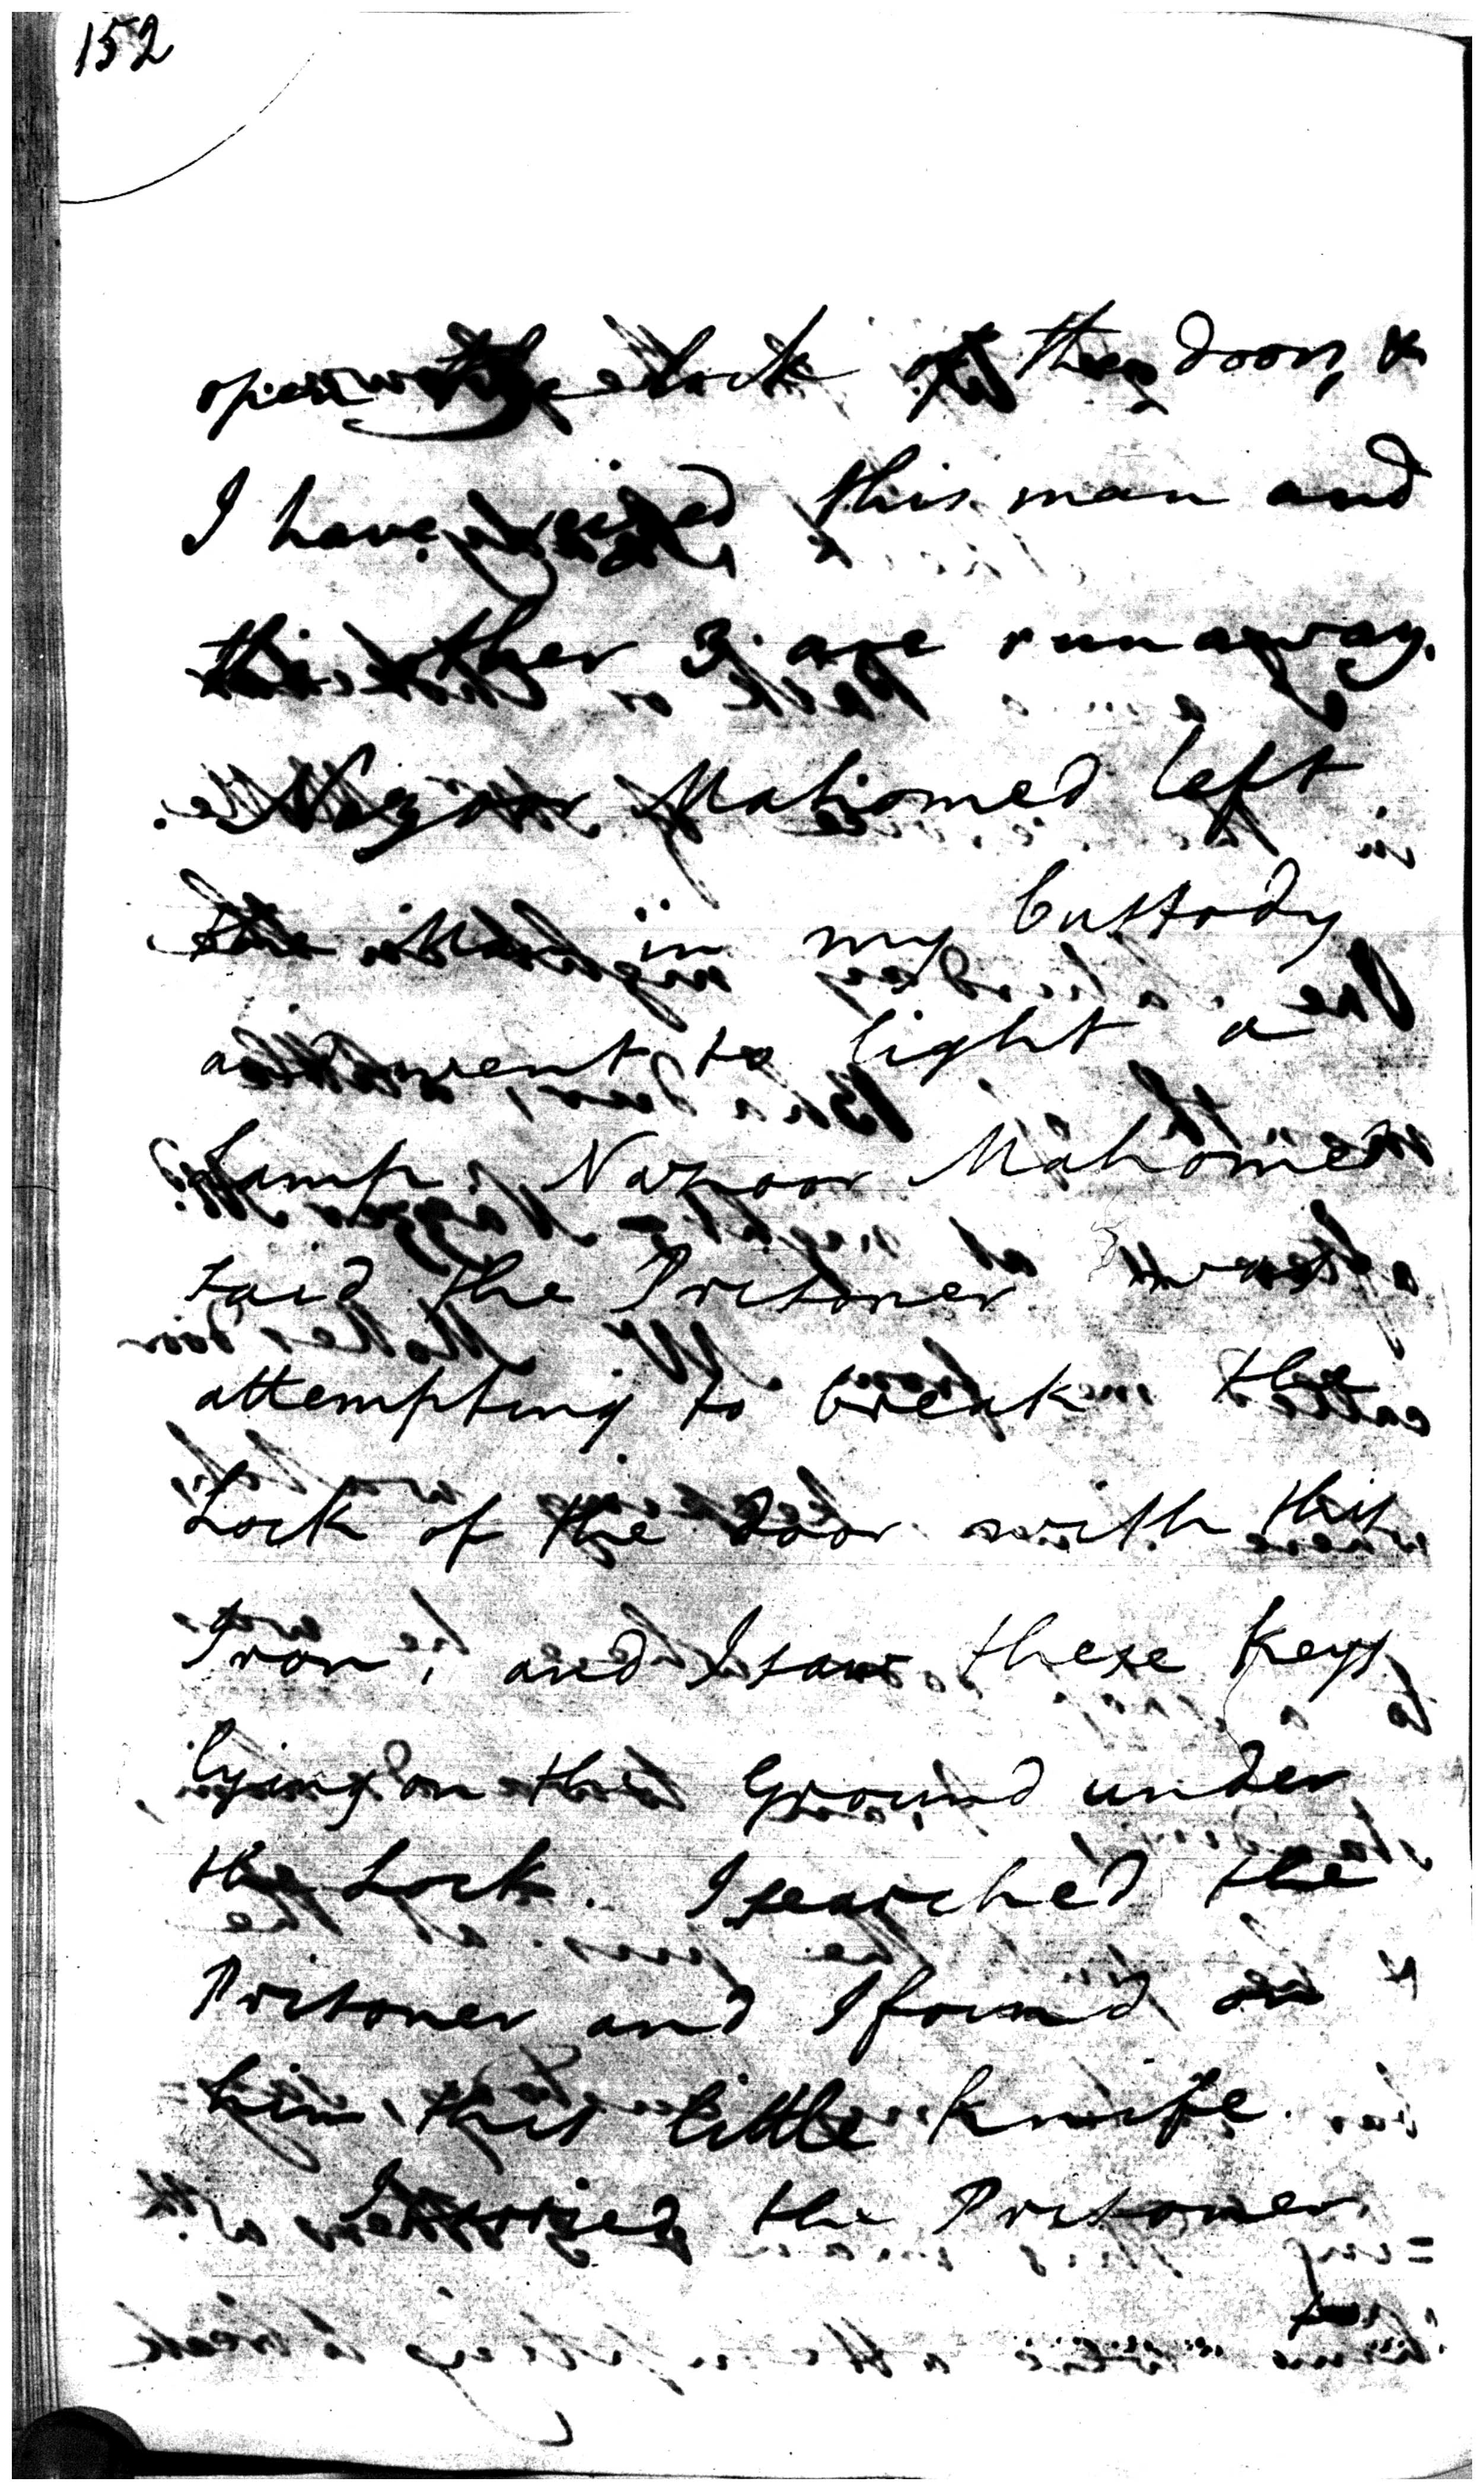 152
open the Lock of the door, &
I have seized this man and
the other 3 are run away.
Nazoor Mahomed left
the Man in my Custody
and went to light a
Lamp. Nazoor Mahomed
said the Prisoner was
attempting to break the
Lock of the Door with this
Iron, and I saw these Keys
lying on the Ground under
the Lock. I searched the
Prisoner and I found on
him this little knife.
I seized the Prisoner